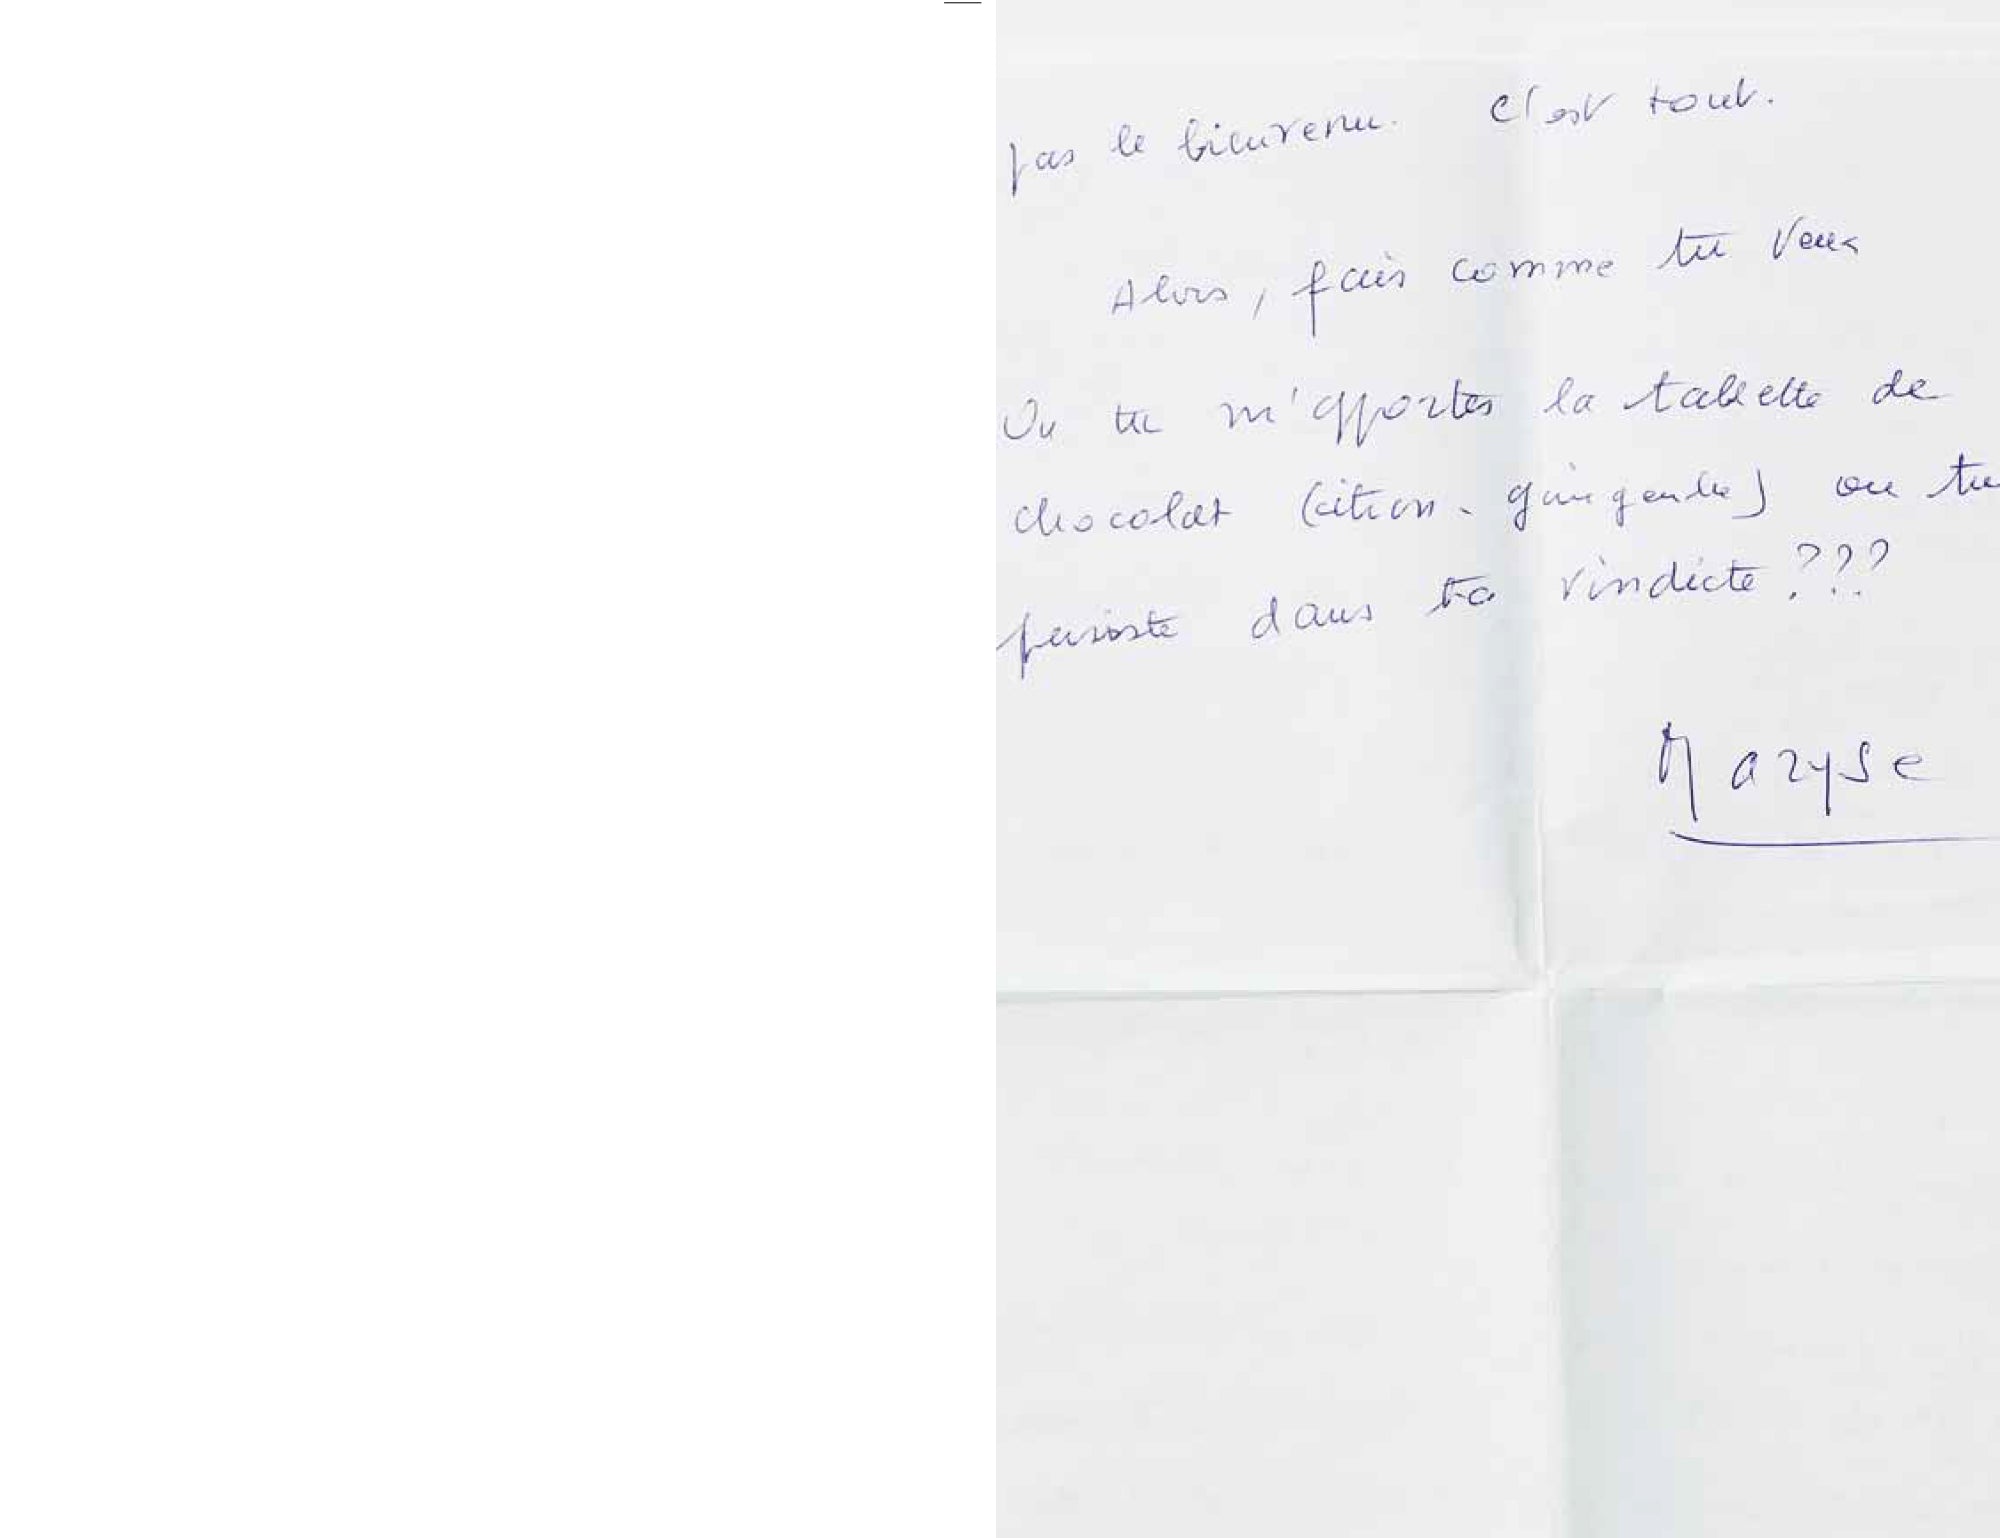 pas le bienvenu. C'est tout.
Alors, fais comme tu veux
Ou tu m'apportes la tablette de
chocolat (citron - gingembre) ou tu
persiste dans ta vindicte ???
Maryse